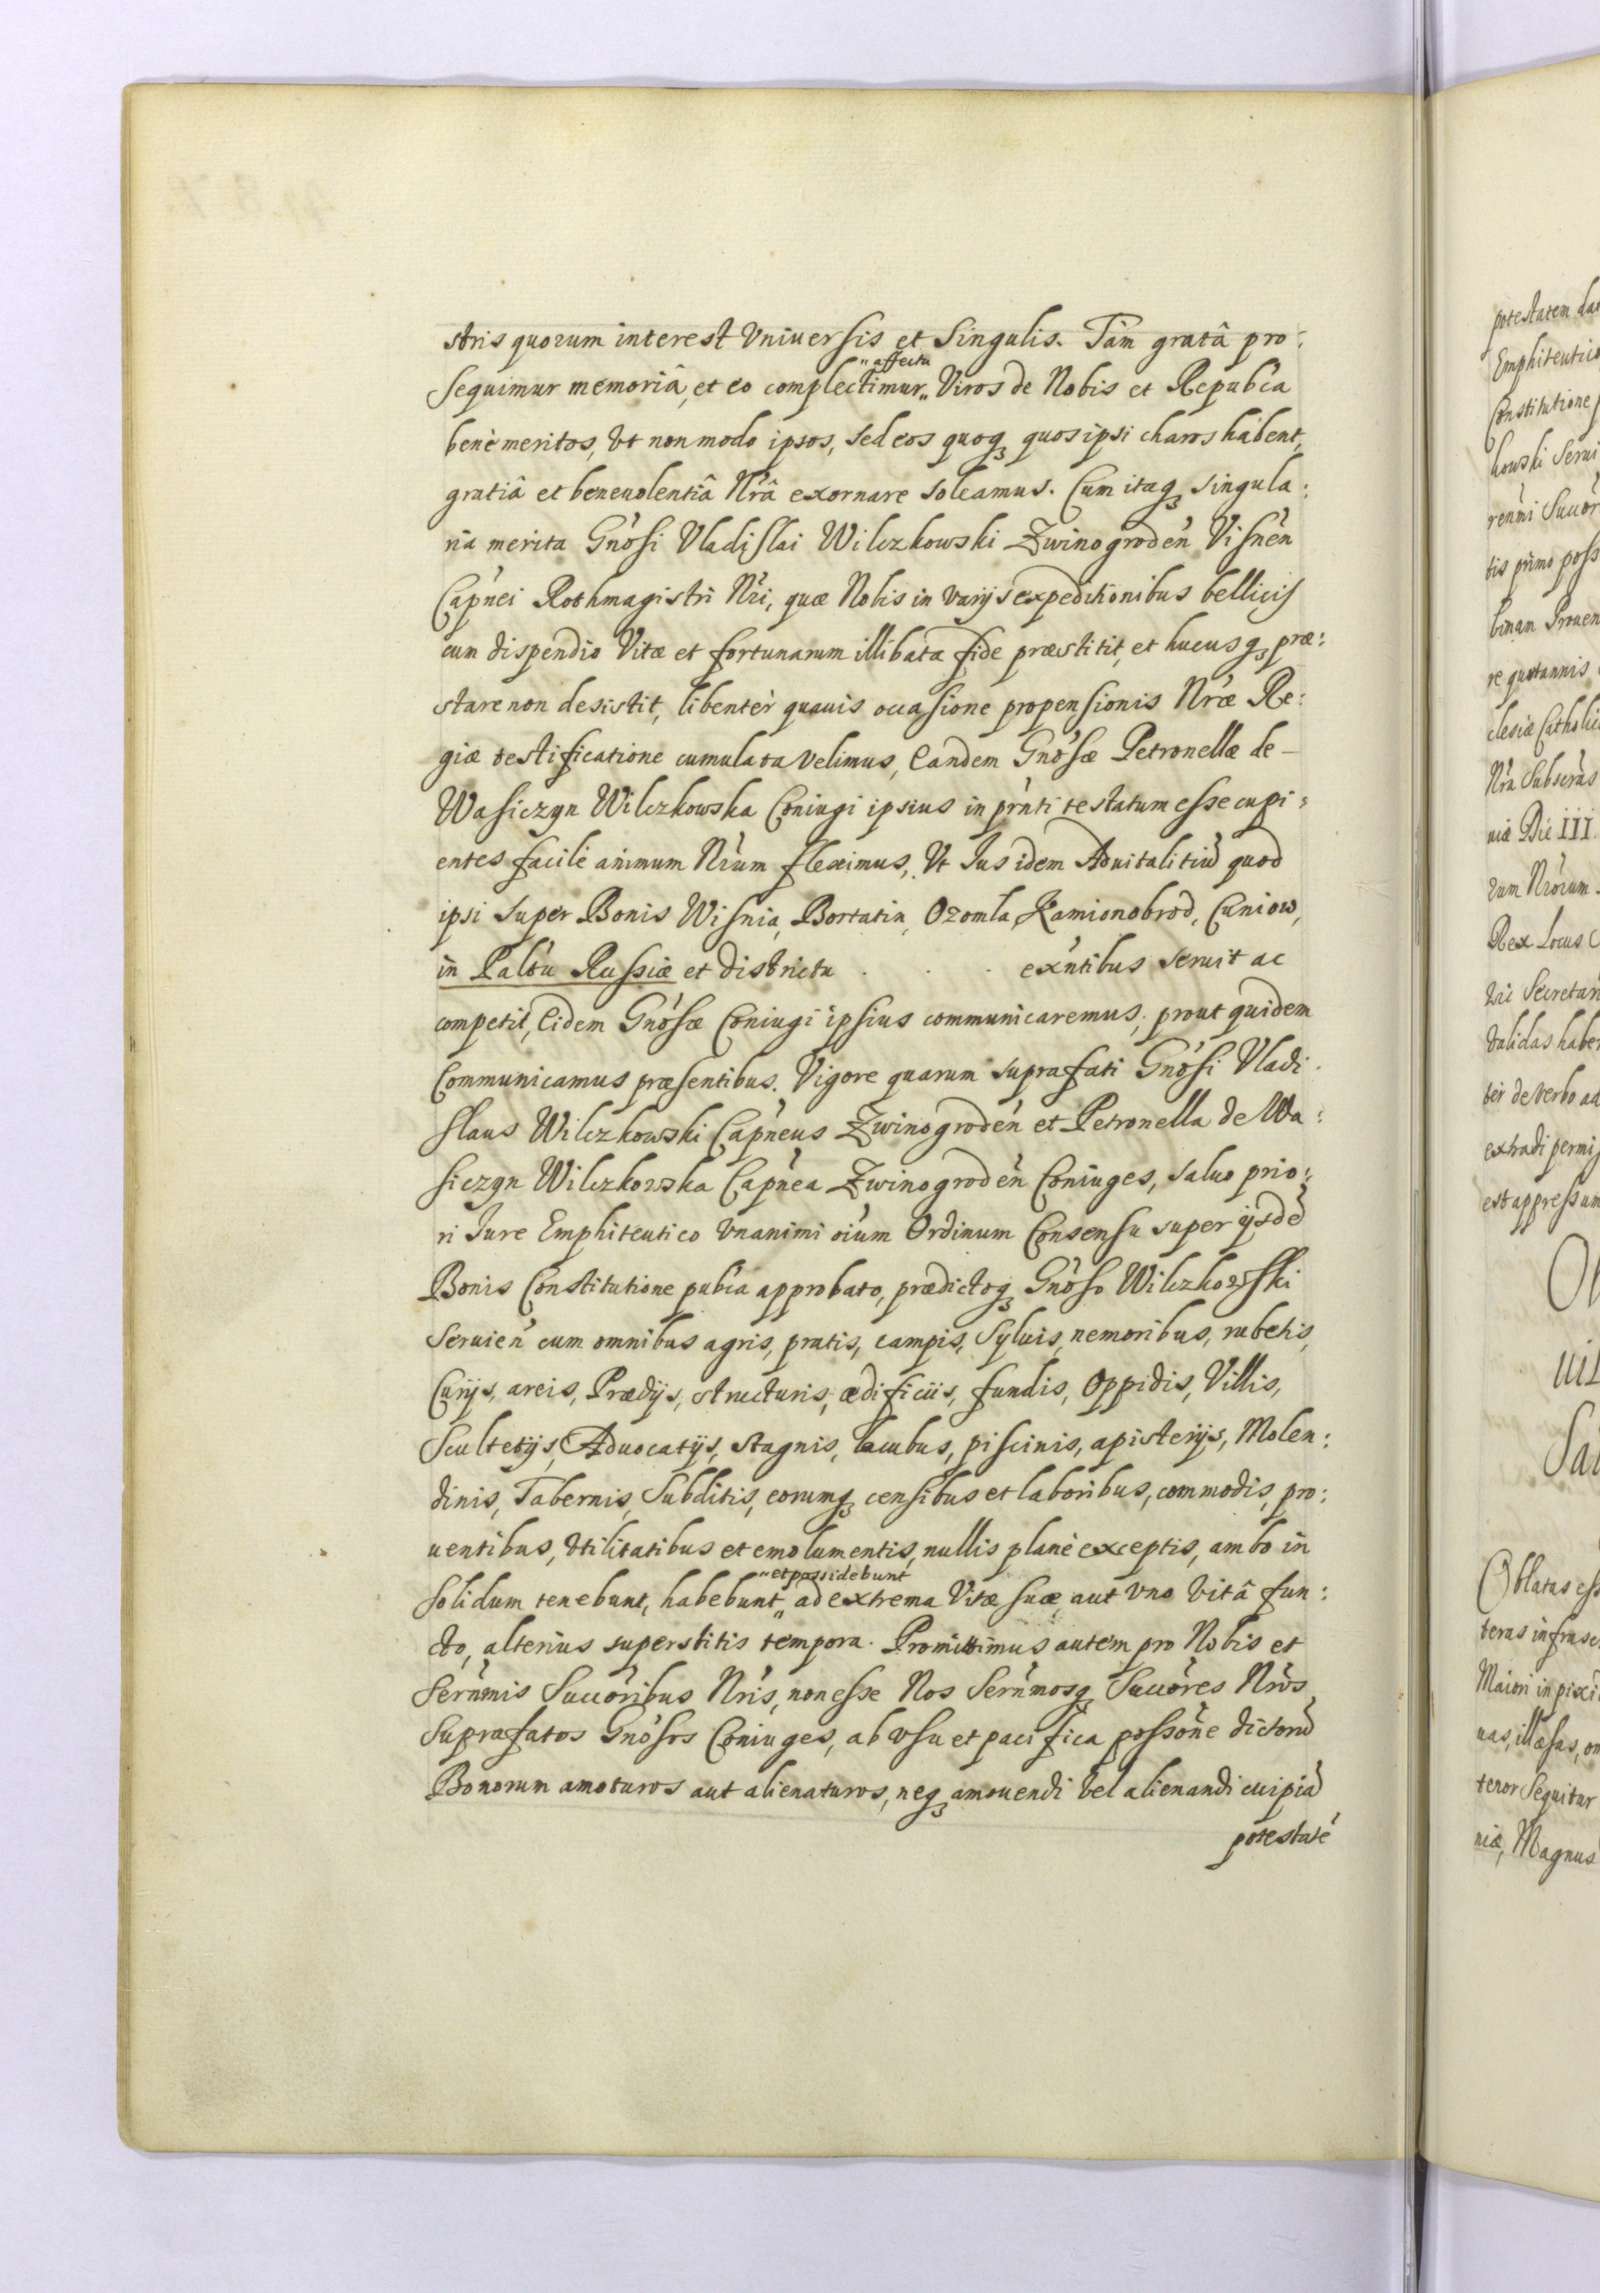 stris quorum interest Vniuersis et Singulis. Tàm gratâ pro:
sequimur memoriâ, et eo complectimur „affectu„ Viros de Nobis et Repub́ca
benè meritos, Vt non modo ipsos, sed eos quoqꝫ quos ipsi charos habent,
gratiâ et beneuolentiâ Nŕâ exornare soleamus. Cum itaqꝫ singula:
ria merita Gńosi Vladislai Wilczkowski Zwinogrodeń Visneń
Capńei Rothmagistri Nŕi, quæ Nobis in varijs expeditionibus bellicis
cum dispendio Vitæ et fortunarum illibata fide præstitit, et hucusqꝫ præ:
stare non desistit, libentèr quauis occasione propensionis Nŕæ Re:
giæ testificatione cumulata velimus, Eandem Gńosæ Petronellæ de –
Wasiczyn Wilczkowska Coniugi ipsius in pŕnti testatum esse cupi:
entes facilè animum Nŕum fleximus, Vt Jus idem Aduitalitiū quod
ipsi super Bonis Wisnia, Bortatin, Ozomla, Kamionobrod, Cuniow,
in Palt́u Russiæ et districtu . . . exńtibus seruit ac
competit, Eidem Gńosæ Coniugi ipsius communicaremus, prout quidem
Communicamus præsentibus. Vigore quarum suprafati Gńosi Vladi:
slaus Wilczkowski Capńeus Zwinogrodeń et Petronella de Wa:
siczyn Wilczkowska Capńea Zwinogrodeń Coniuges, saluo prio:
ri Jure Emphiteutico vnanimi oíum Ordinum Consensu super ijsdē
Bonis Constitutione pub́ca approbato, prædictoqꝫ Gńoso Wilczkowski
Seruień cum omnibus agris, pratis, campis, Syluis, nemoribus, rubetis,
Curijs, areis, Prædijs, structuris, ædificiis, fundis, Oppidis, Villis,
Scultetijs, Aduocatijs, stagnis, lacubus, piscinis, apisterijs, Molen:
dinis, Tabernis, Subditis, eorumqꝫ censibus et laboribus, commodis, pro:
uentibus, Vtilitatibus et emolumentis, nullis planè exceptis, ambo in
solidum tenebunt, habebunt „et possidebunt„ ad extrema Vitæ suæ, aut vno Vitâ fun:
cto, alterius superstitis tempora. Promittimus autem pro Nobis et
Serńmis Succóribus Nŕis, non esse Nos Serńmosqꝫ Succóres Nŕos,
Suprafatos Gńosos Coniuges, ab vsu et pacifica possóne dictorū
Bonorum amoturos aut alienaturos, neqꝫ amouendi vel alienandi cuipiā
potestatē
potestatem da
Emphiteutic
Constitutione
kowski Serui
reńmi Succor
tis primo poss
re quotannis
clesiæ Catholi
Nŕa Subscŕas
niæ Die III
rum Nŕorum
Rex Locus
Secretar
Validas habe
ter de verbo ad
extradi permis
est appressum
Ob
Oblatas ess
teras infrasc
Maiori in pixi
uas, illæsas, om
tenor Sequitur
niæ, Magnus